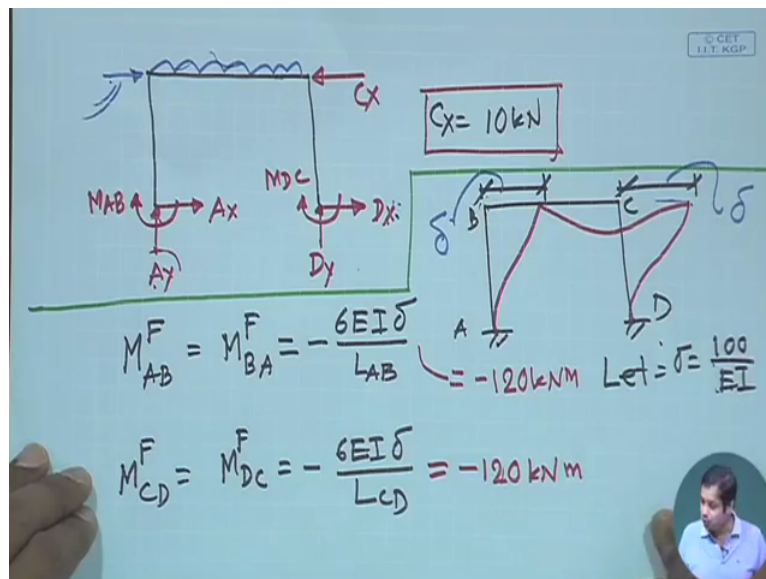 © CET
I.I.T. KGP
Cx
Cx = 10kN
MAB
Ax
Ay
MDC
Dx
Dy
δ
B
C
δ
A
D
M^F_AB = M^F_BA = - 6EIδ / L_AB = -120kNm
Let: δ = 100 / EI
M^F_CD = M^F_DC = - 6EIδ / L_CD = -120kNm